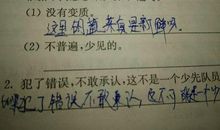 (1) 没有变质。
这里的菌来有是新鲜吗
(2) 不普遍，少见的。
2. 犯了错误，不敢承认，这不是一个少先队员
犯了错误不敢承认，这不可是一个少